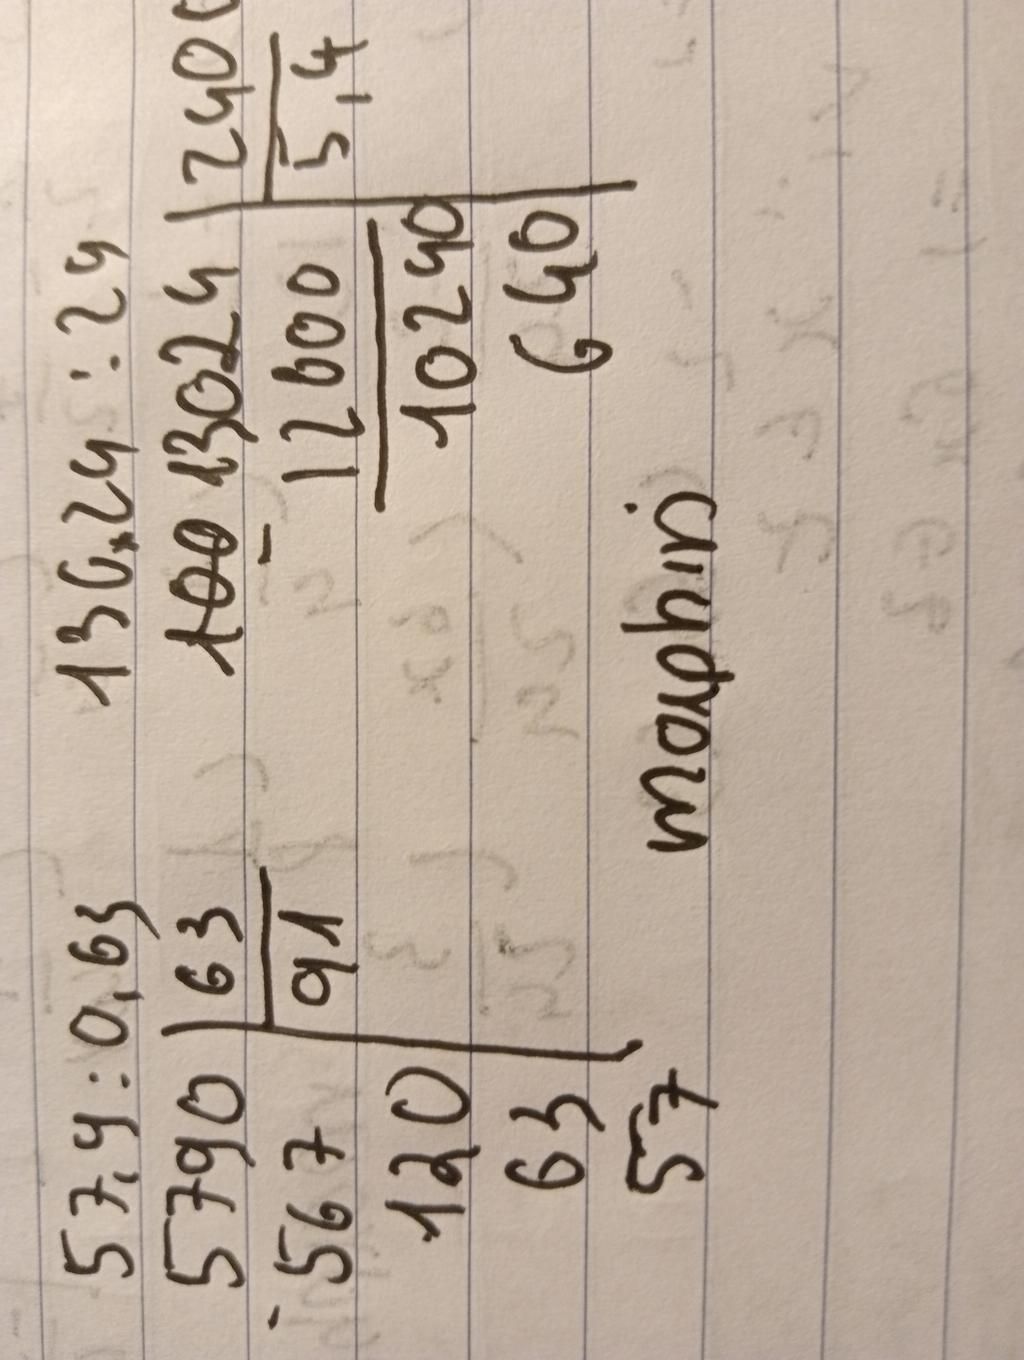 57,9 : 0,63
5790 | 63
- 567 | 91
120
63
57
136,24 : 24
13024 | 240
- 12000 | 5,4
10240
640